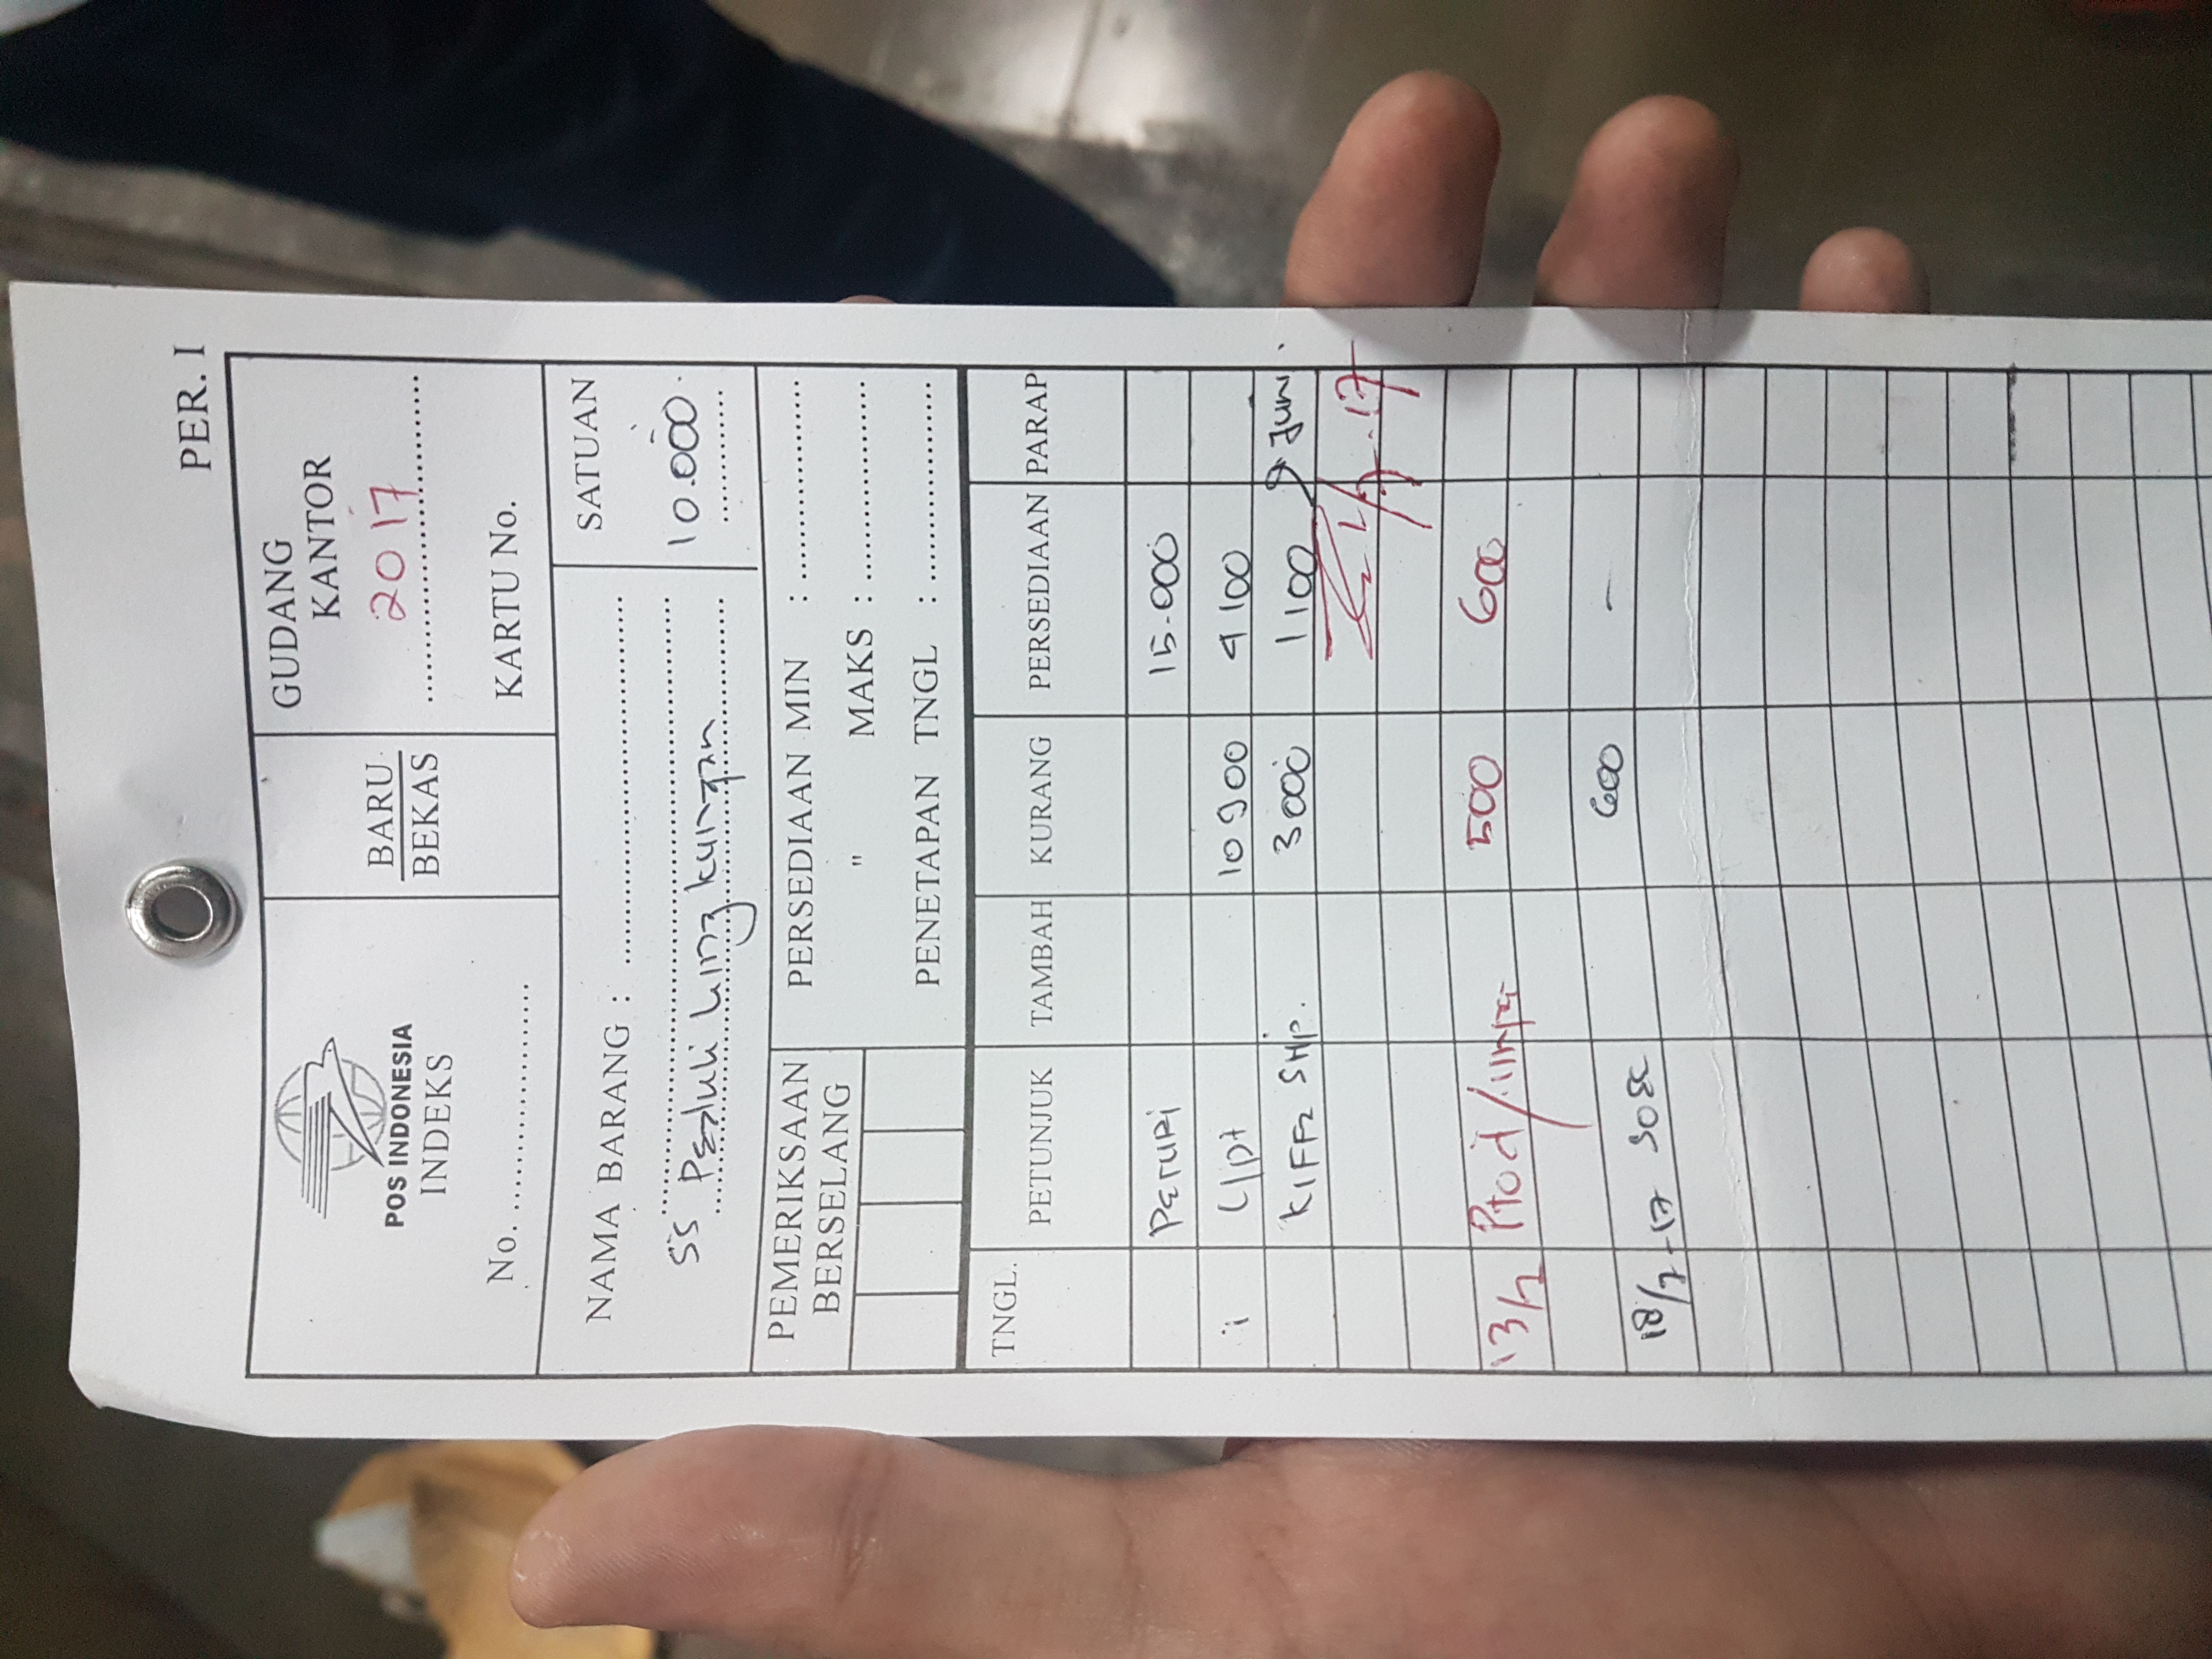 PER. I
POS INDONESIA
INDEKS
No. ....................
BARU
BEKAS
GUDANG
KANTOR
2017
KARTU No.
NAMA BARANG :
SS Peduli Lingkungan
SATUAN
10.000
PEMERIKSAAN
BERSELANG
PERSEDIAAN MIN :
" MAKS :
PENETAPAN TNGL :
TNGL. PETUNJUK TAMBAH KURANG PERSEDIAAN PARAP
PERURI 15.000
10900 4100
3000 1100 Juni
17
13/7 Prod/ 500 600
600 -
18/7-17